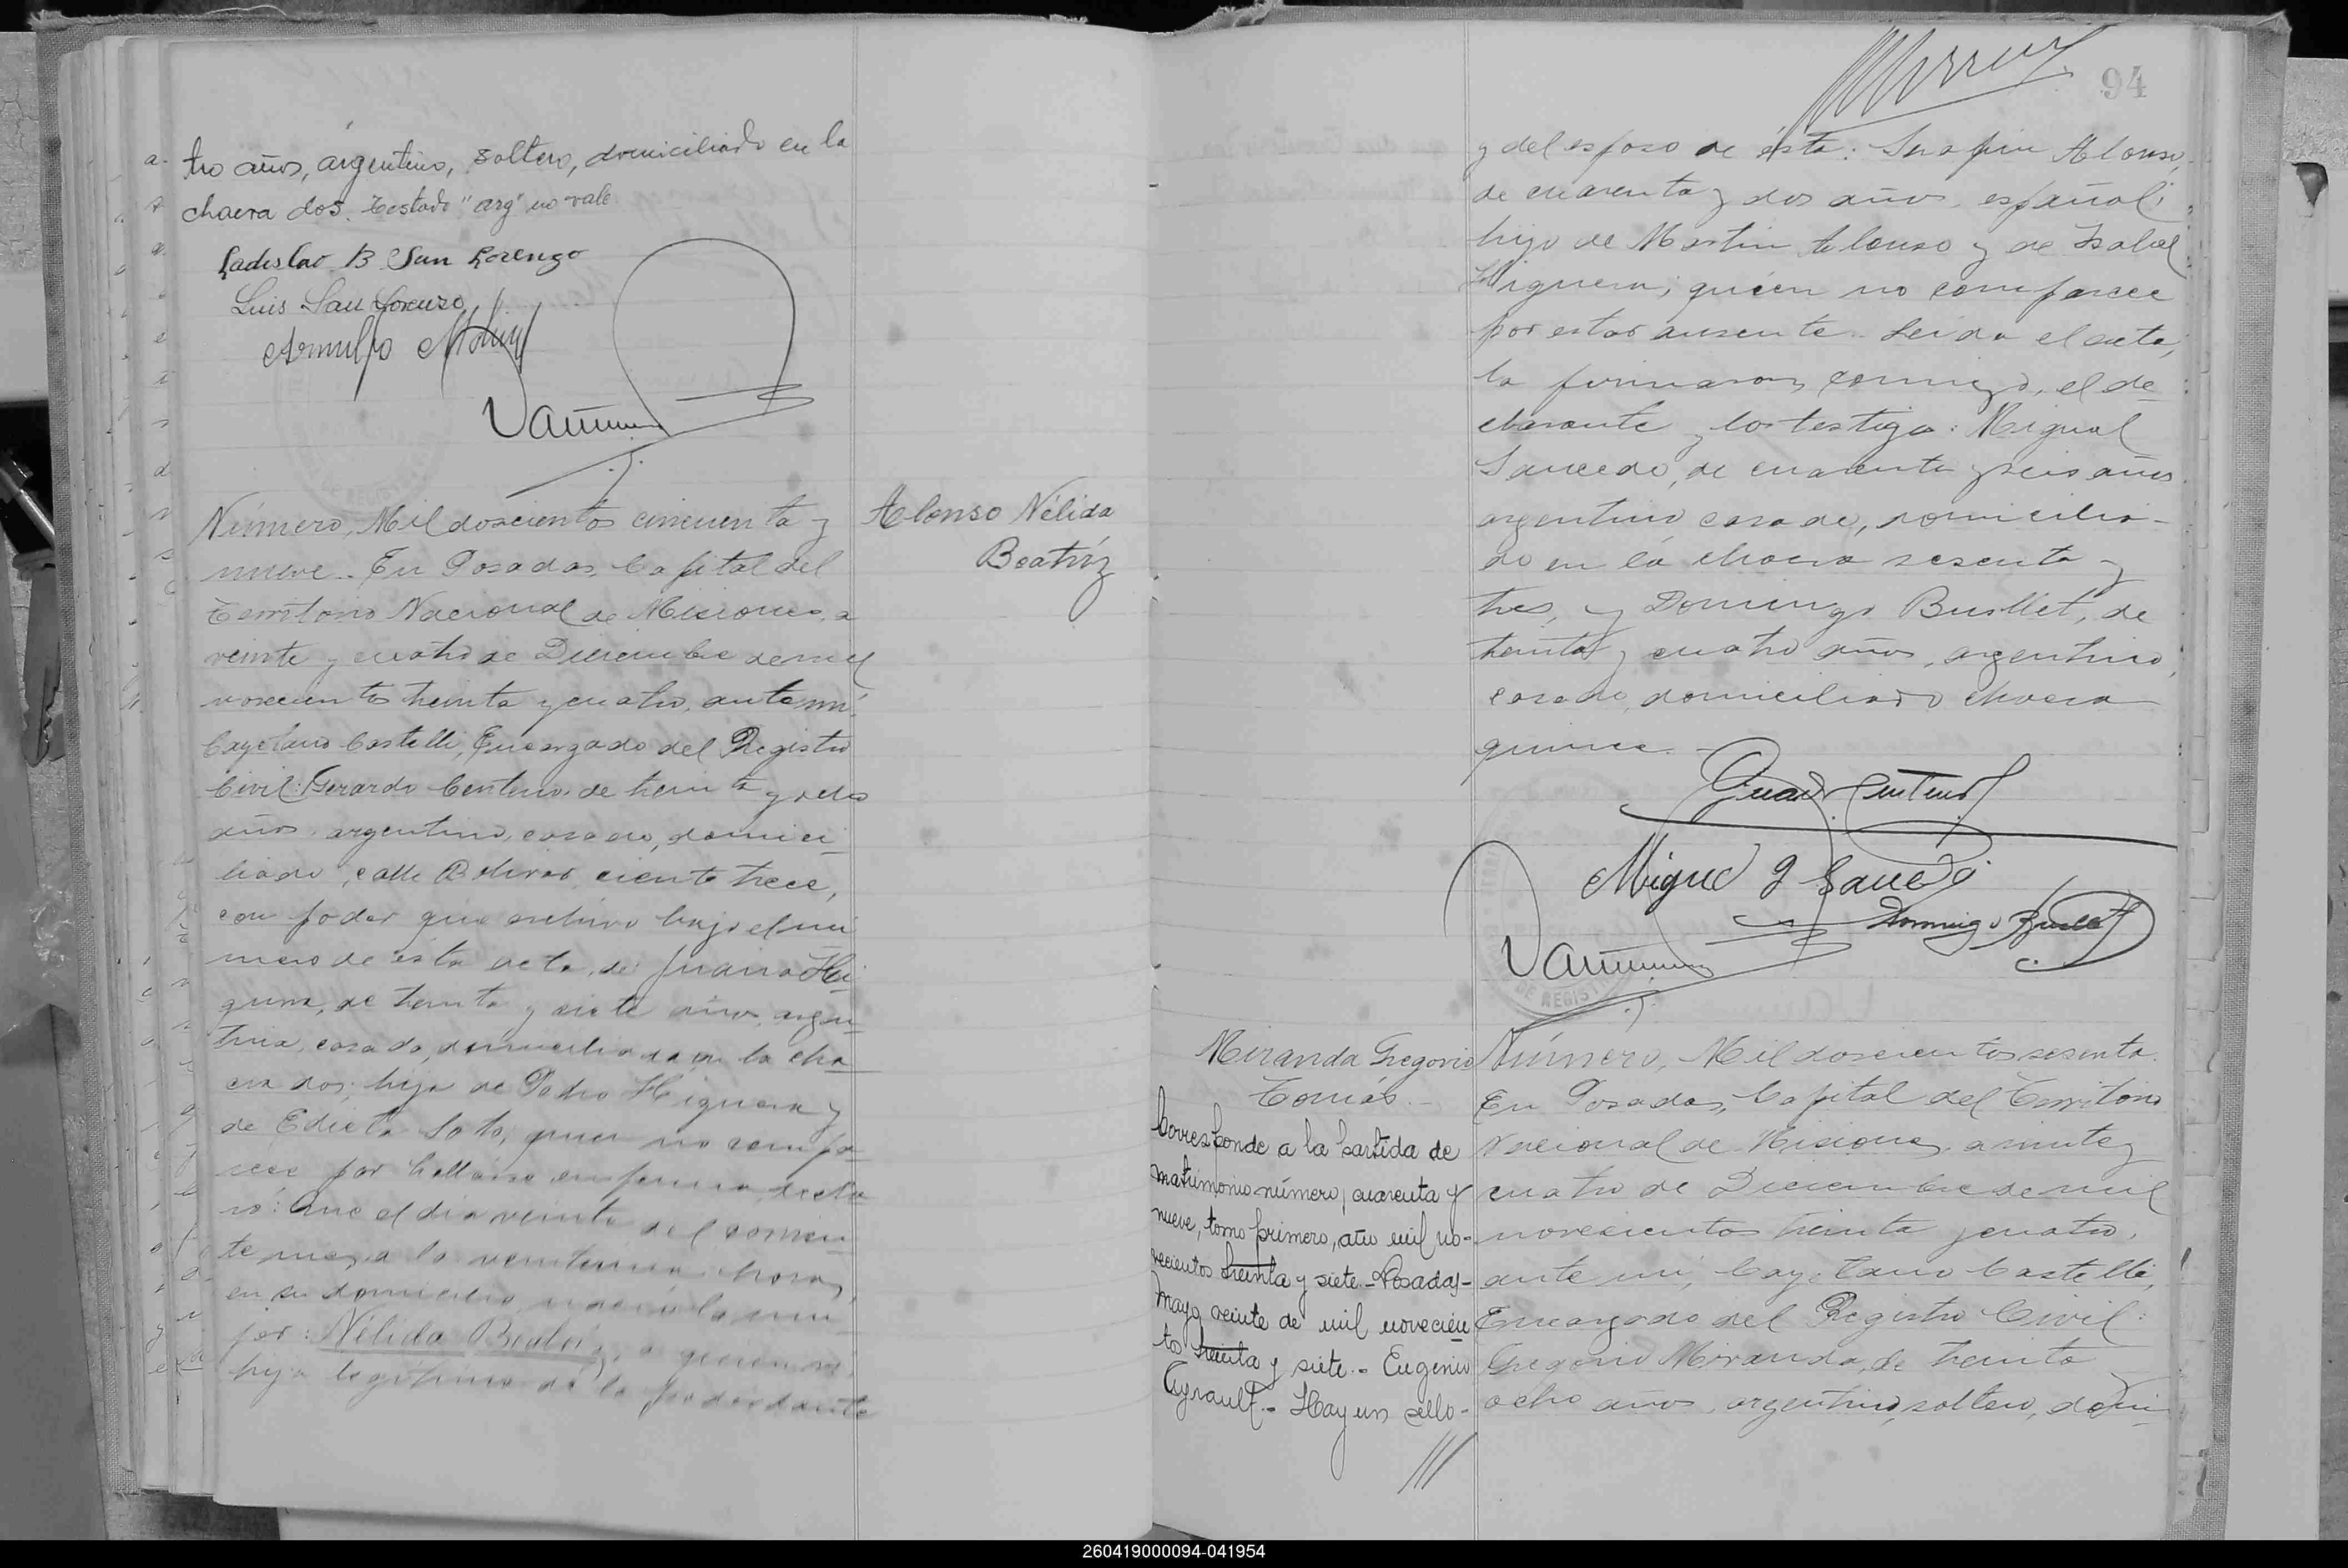 tro años, argentino, soltero, domiciliado en la
chacra dos. Testado "arg" no vale.
Ladislao B San Lorenzo
Luis San Lorenzo
Arnulfo
Número, Mil doscientos cincuenta y
nueve.. En Posadas, Capital del
Territorio Nacional de Misiones, a
veinte y cuatro de Diciembre de mil
novecientos treinta y cuatro, ante mi
Cayetano Castelli, Encargado del Registro
Civil: Gerardo Centeno, de treinta y
años, argentino, casado, domici-
liado, calle Bolivar ciento trece,
con poder que archivo bajo el nú
mero de ésta acta, de Juana Hi-
guera, de treinta y siete años, argen-
tina, casada, domiciliada en la cha
cra dos; hija de Pedro Higuera y
de Edicta Soto, quien no compa-
rece por hallarse enferma, decla
ró: Que el día veinte del corrien-
te mes, a la horas,
en su domicilio, nació la mu-
jer: Nélida Beatriz, a quien
hija legítima de la poderdante
Alonso Nélida
Beatríz
94
y del esposo de ésta: Serafin Alonso,
de cuarenta y dos años, español;
hijo de Martin Alonso y de Isabel
Higuera; quién no comparece
por estar ausente. Leída el acta,
la firmaron, conmigo, el de-
clarante y los testigos: Miguel
Saucedo, de cuarenta y seis años
argentino casado, domicilia-
do en la chacra sesenta y
tres, y Domingo Busllet, de
treinta y cuatro años, argentino,
casado, domiciliado chacra
quince. -
Centeno
Miguel J Saucedo
Domingo Busllet
DE REGISTR
Miranda Gregorio
Tomás.-
Corresponde a la partida de
matrimonio número, cuarenta y
nueve, tomo primero, año mil no-
vecientos treinta y siete.- Posadas-
Mayo veinte de mil novecien
tos treinta y siete.- Eugenio
Ayrault.- Hay un sello-
Número, Mil doscientos sesenta.
En Posadas, Capital del Territorio
Nacional de Misiones, a veinte y
cuatro de Diciembre de mil
novecientos treinta y cuatro,
ante mi, Cayetano Castelli,
Encargado del Registro Civil:
Gregorio Miranda, de treinta
ocho años, argentino, soltero, domi-
260419000094-041954